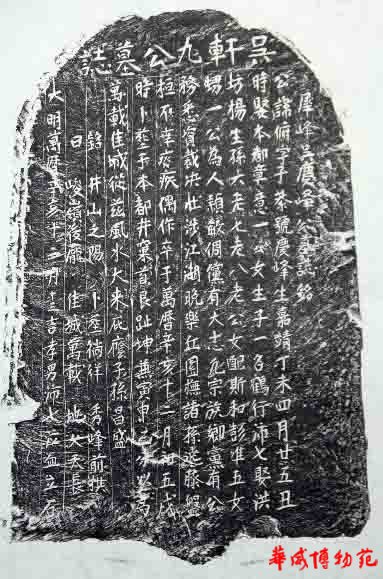 吴軒九公墓誌
犀峰吴慶峰公墓誌銘
公諱俯字子恭號慶峰生嘉靖丁未四月廿五丑
時娶本都章意一公女生子一名鶴行沛七娶洪
坊楊生孫大老七老八老公女配斯和彭唯五女
甥一公為人穎敏倜儻有大志九宗族鄉黨甫公
務悉資裁決壮涉江湖晚樂紅園撫諸孫
桓不幸疾偶作卒于萬曆辛亥十二月五戌
時卜塟于本都井窠首艮趾坤寅申
萬載佳城從兹風水大來庇廕子孫昌盛
銘井山之陽卜塟徜徉秀峰前拱
曰峻嶺後龐佳城萬載地久天長
大明萬曆辛亥十二月吉孝男沛七泣血立石
華威博物苑